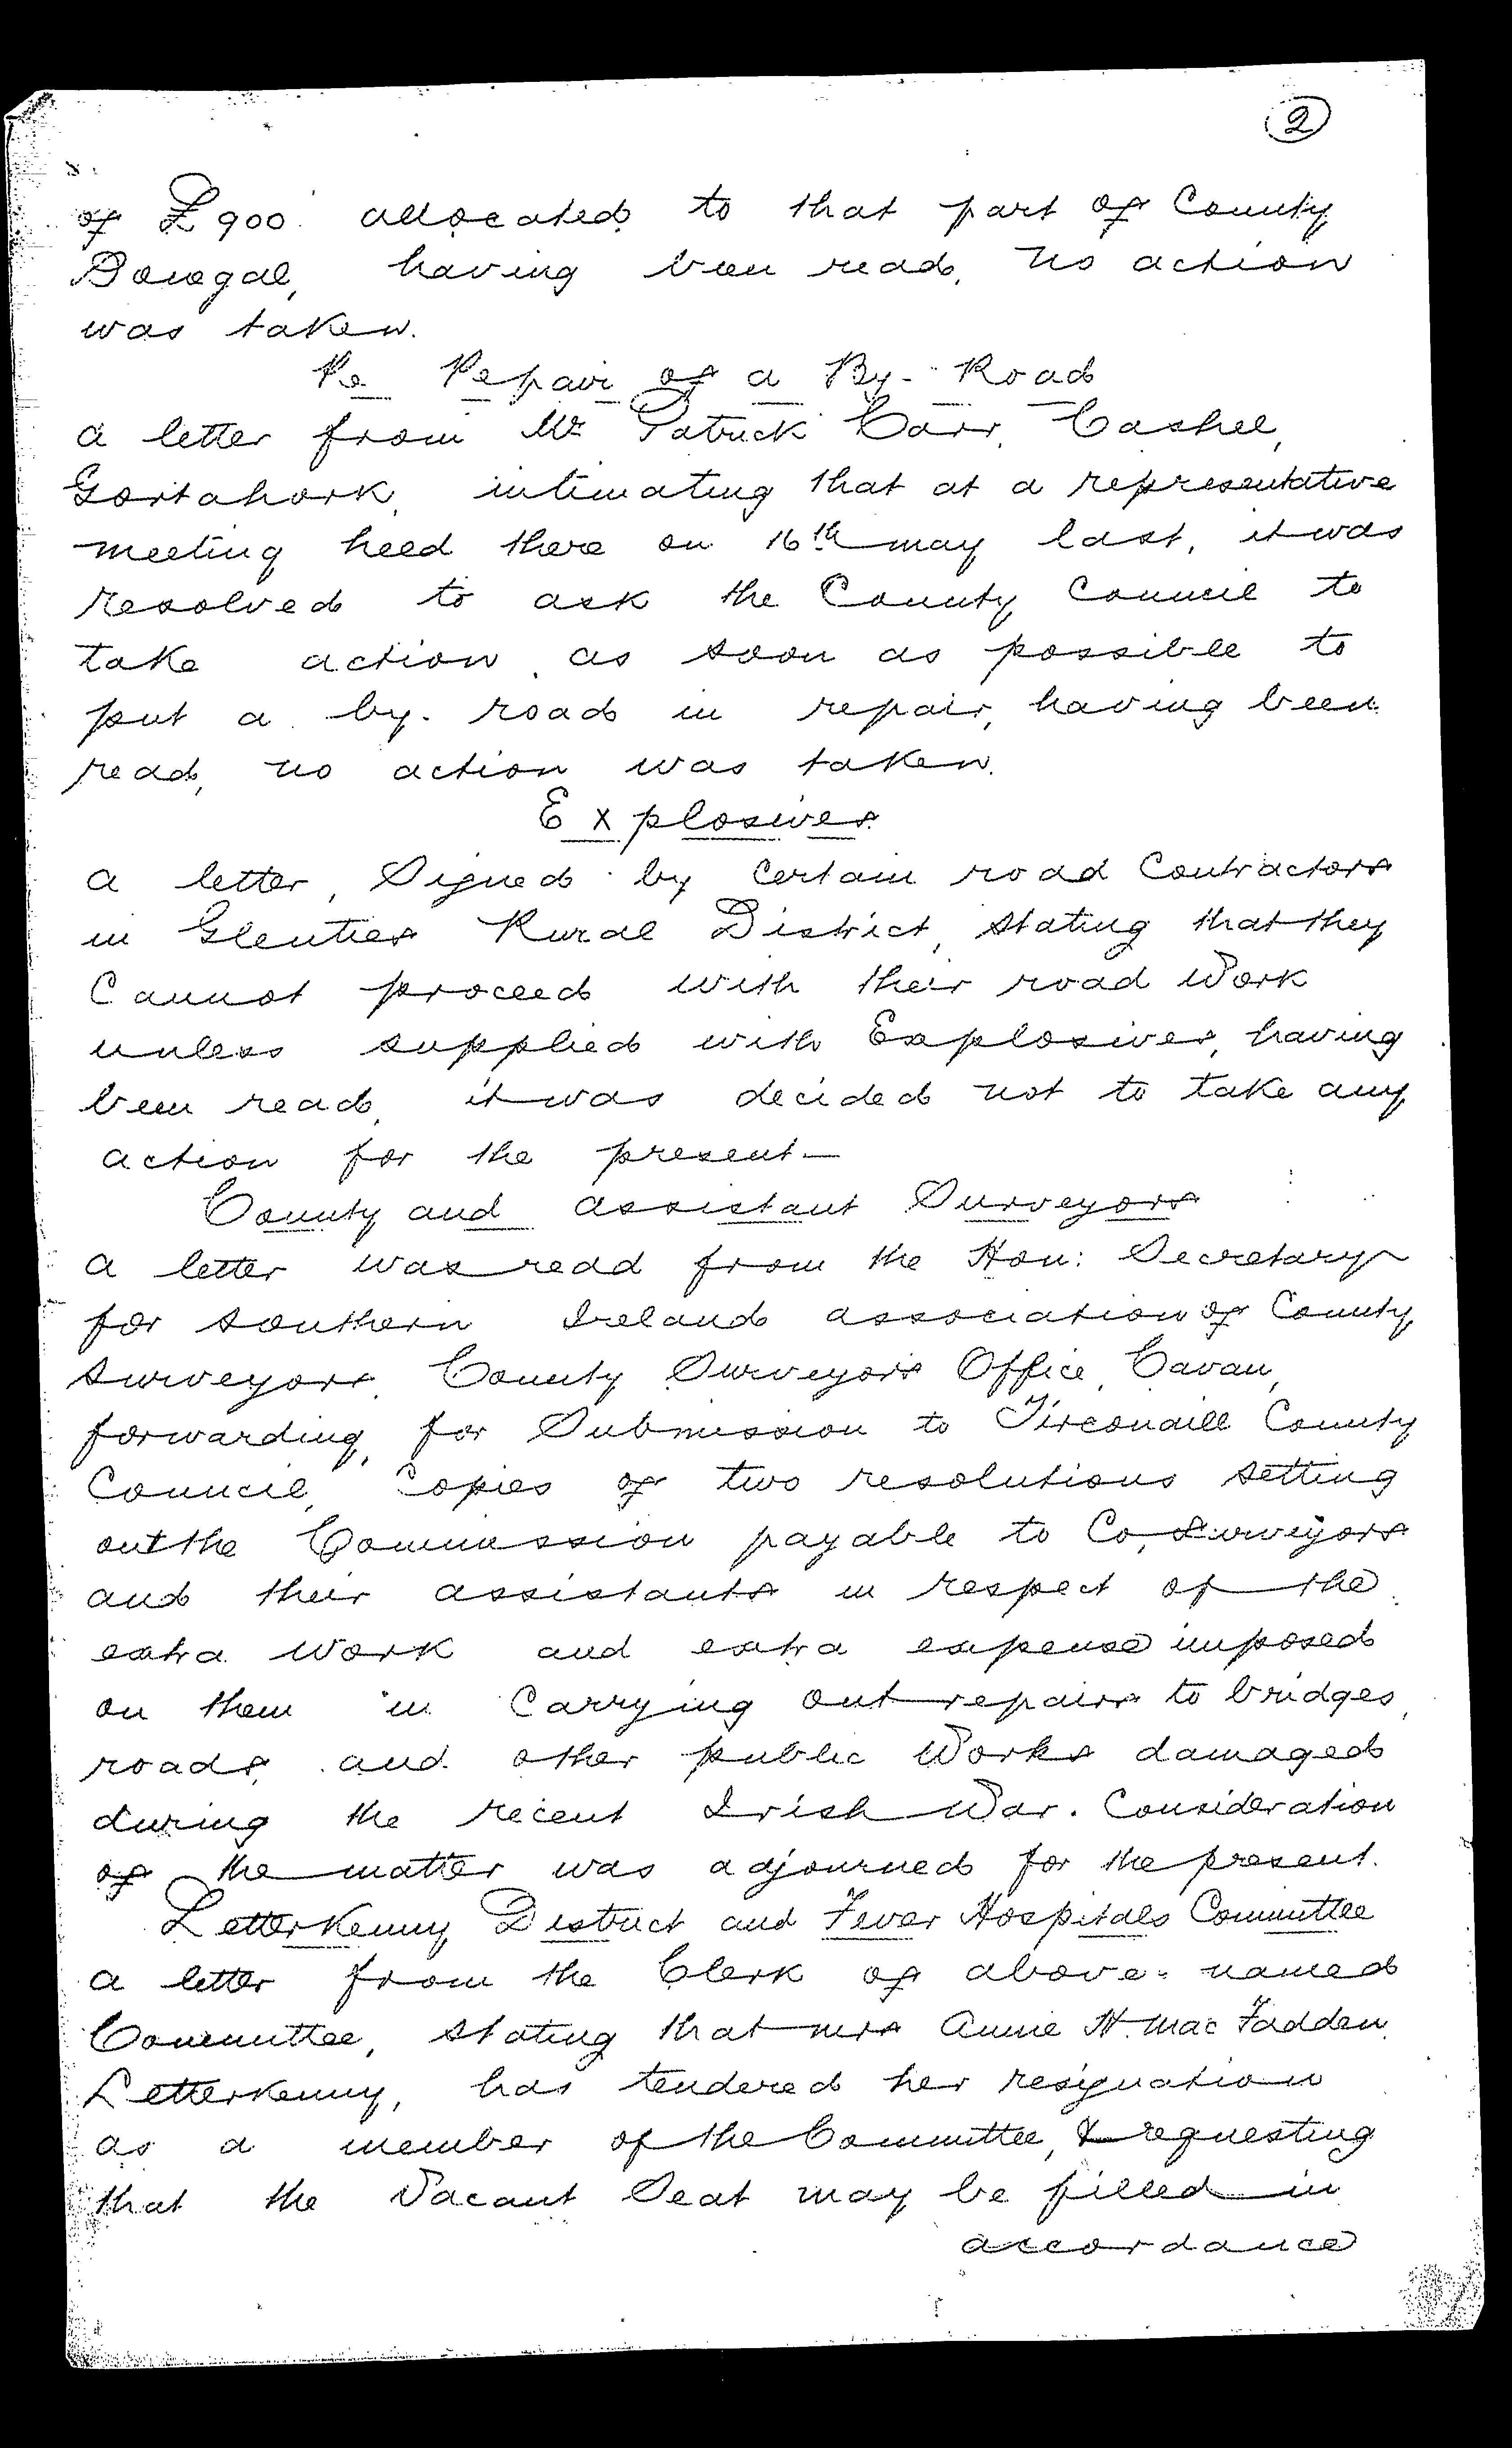 2
of £900 allocated to that part of County
Donegal, having been read, no action
was taken.
Re Repair of a By-Road
a letter from Mr Patrick Carr, Cashel,
Gortahork, intimating that at a representative
meeting held there on 16th may last, it was
resolved to ask the County Council to
take action as soon as possible to
put a by-road in repair, having been
read, no action was taken.
Explosives
a letter, Signed by certain road Contractors
in Glenties Rural District, stating that they
Cannot proceed with their road Work
unless supplied with Explosives, having
been read, it was decided not to take any
action for the present—
County and assistant Surveyors
a letter was read from the Hon: Secretary
for southern Ireland association of County
surveyors, County Surveyors Office, Cavan,
forwarding, for Submission to Tirconaill County
Council, Copies of two resolutions setting
out the Commission payable to Co, Surveyors
and their assistants in respect of the
extra work and extra expense imposed
on them in Carrying out repairs to bridges,
roads, and other public Works damaged
during the recent Irish War. Consideration
of the matter was adjourned for the present.
Letterkenny District and Fever Hospitals Committee
a letter from the Clerk of above-named
Committee, stating that mrs Annie H. Mac Fadden,
Letterkenny, has tendered her resignation
as a member of the Committee, & requesting
that the Vacant Seat may be filled in
accordance